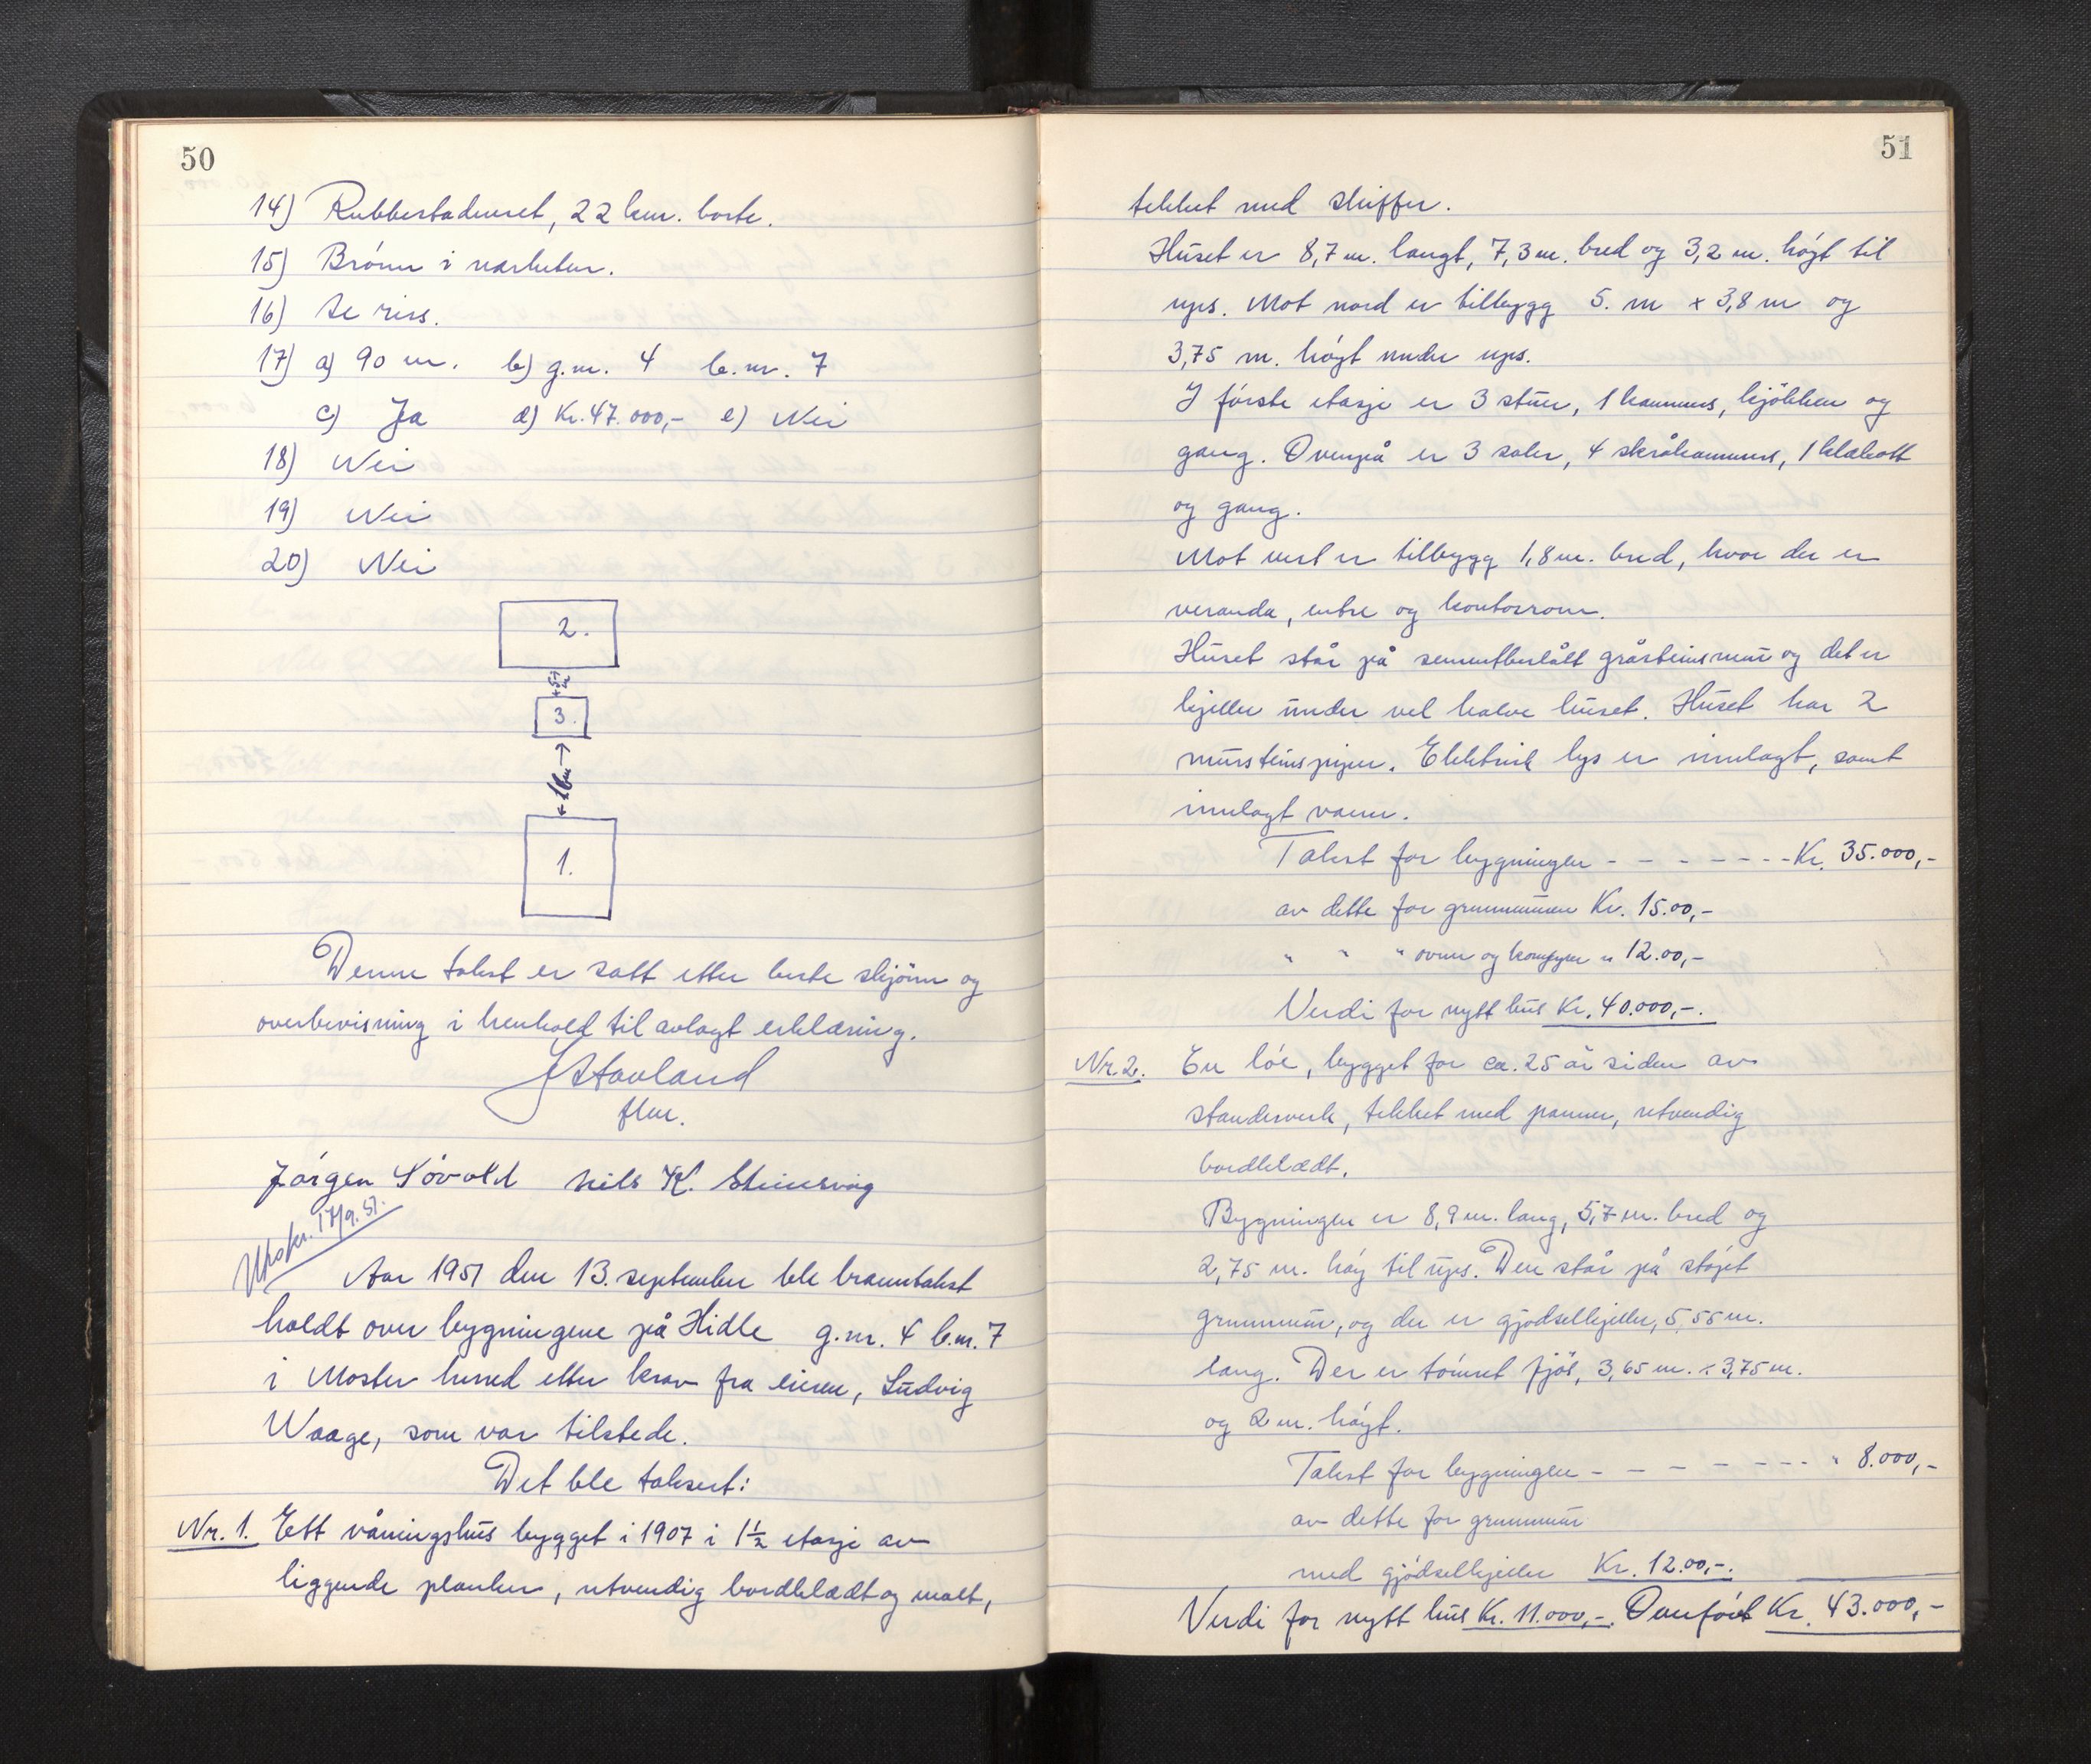 50
14) Rubbestadneset, 22 km. borte.
15) Brønn i nærheten.
16) Se riss.
17) a) 90 m. b) g.nr. 4 b.nr. 7
c) Ja d) Kr. 47.000,- e) Nei
18) Nei
19) Nei
20) Nei
2.
3.
16m
1.
Denne takst er satt etter beste skjønn og
overbevisning i henhold til avlagt erklæring.
J Stavland
flm.
Jørgen Søvold Nils K. Steinsvåg
Utskr. 17/9.51.
Aar 1951 den 13. september ble branntakst
holdt over bygningene på Hidle g.nr. 4 b.nr. 7
i Moster herred etter krav fra eieren, Ludvig
Waage, som var tilstede.
Det ble taksert:
Nr. 1. Ett våningshus bygget i 1907 i 1½ etasje av
liggende planker, utvendig bordklædt og malt,
51
tekket med skiffer.
Huset er 8,7 m. langt, 7,3 m. bred og 3,2 m. høgt til
ups. Mot nord er tilbygg 5. m x 3,8 m og
3,75 m. høgt under ups.
I første etasje er 3 stuer, 1 kammers, kjøkken og
gang. Ovenpå er 3 saler, 4 skråkammers, 1 klekott
og gang.
Mot vest er tilbygg 1,8 m. bred, hvor der er
veranda, entre og kontorrom.
Huset står på sementberlått gråsteinsmur og det er
kjeller under vel halve huset. Huset har 2
mursteinspiper. Elektrisk lys er innlagt, samt
innlagt vann.
Takst for bygningen - - - - - - - Kr. 35.000,-
av dette for grunnmuren Kr. 15.00,-
" " " ovner og komfyrer " 12.00,-
Verdi for nytt hus Kr. 40.000,-.
Nr. 2. En løe, bygget for ca. 25 år siden av
standerverk, tekket med panner, utvendig
bordklædt.
Bygningen er 8,9 m. lang, 5,7 m. bred og
2,75 m. høg til ups. Den står på støpt
grunnmur, og der er gjødselkjeller, 5,55 m.
lang. Der er tømret fjøs, 3,65 m. x 3,75 m.
og 2 m. høgt.
Takst for bygningen - - - - - - - " 8.000,-
av dette for grunnmur
med gjødselkjeller Kr. 12.00,-.
Verdi for nytt hus Kr. 11.000,-. Overført Kr. 43.000,-